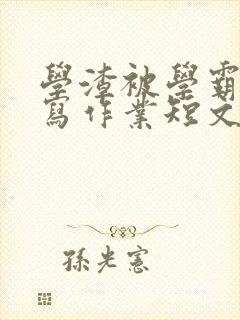 學渣被學霸
寫作業短文
孫光憲